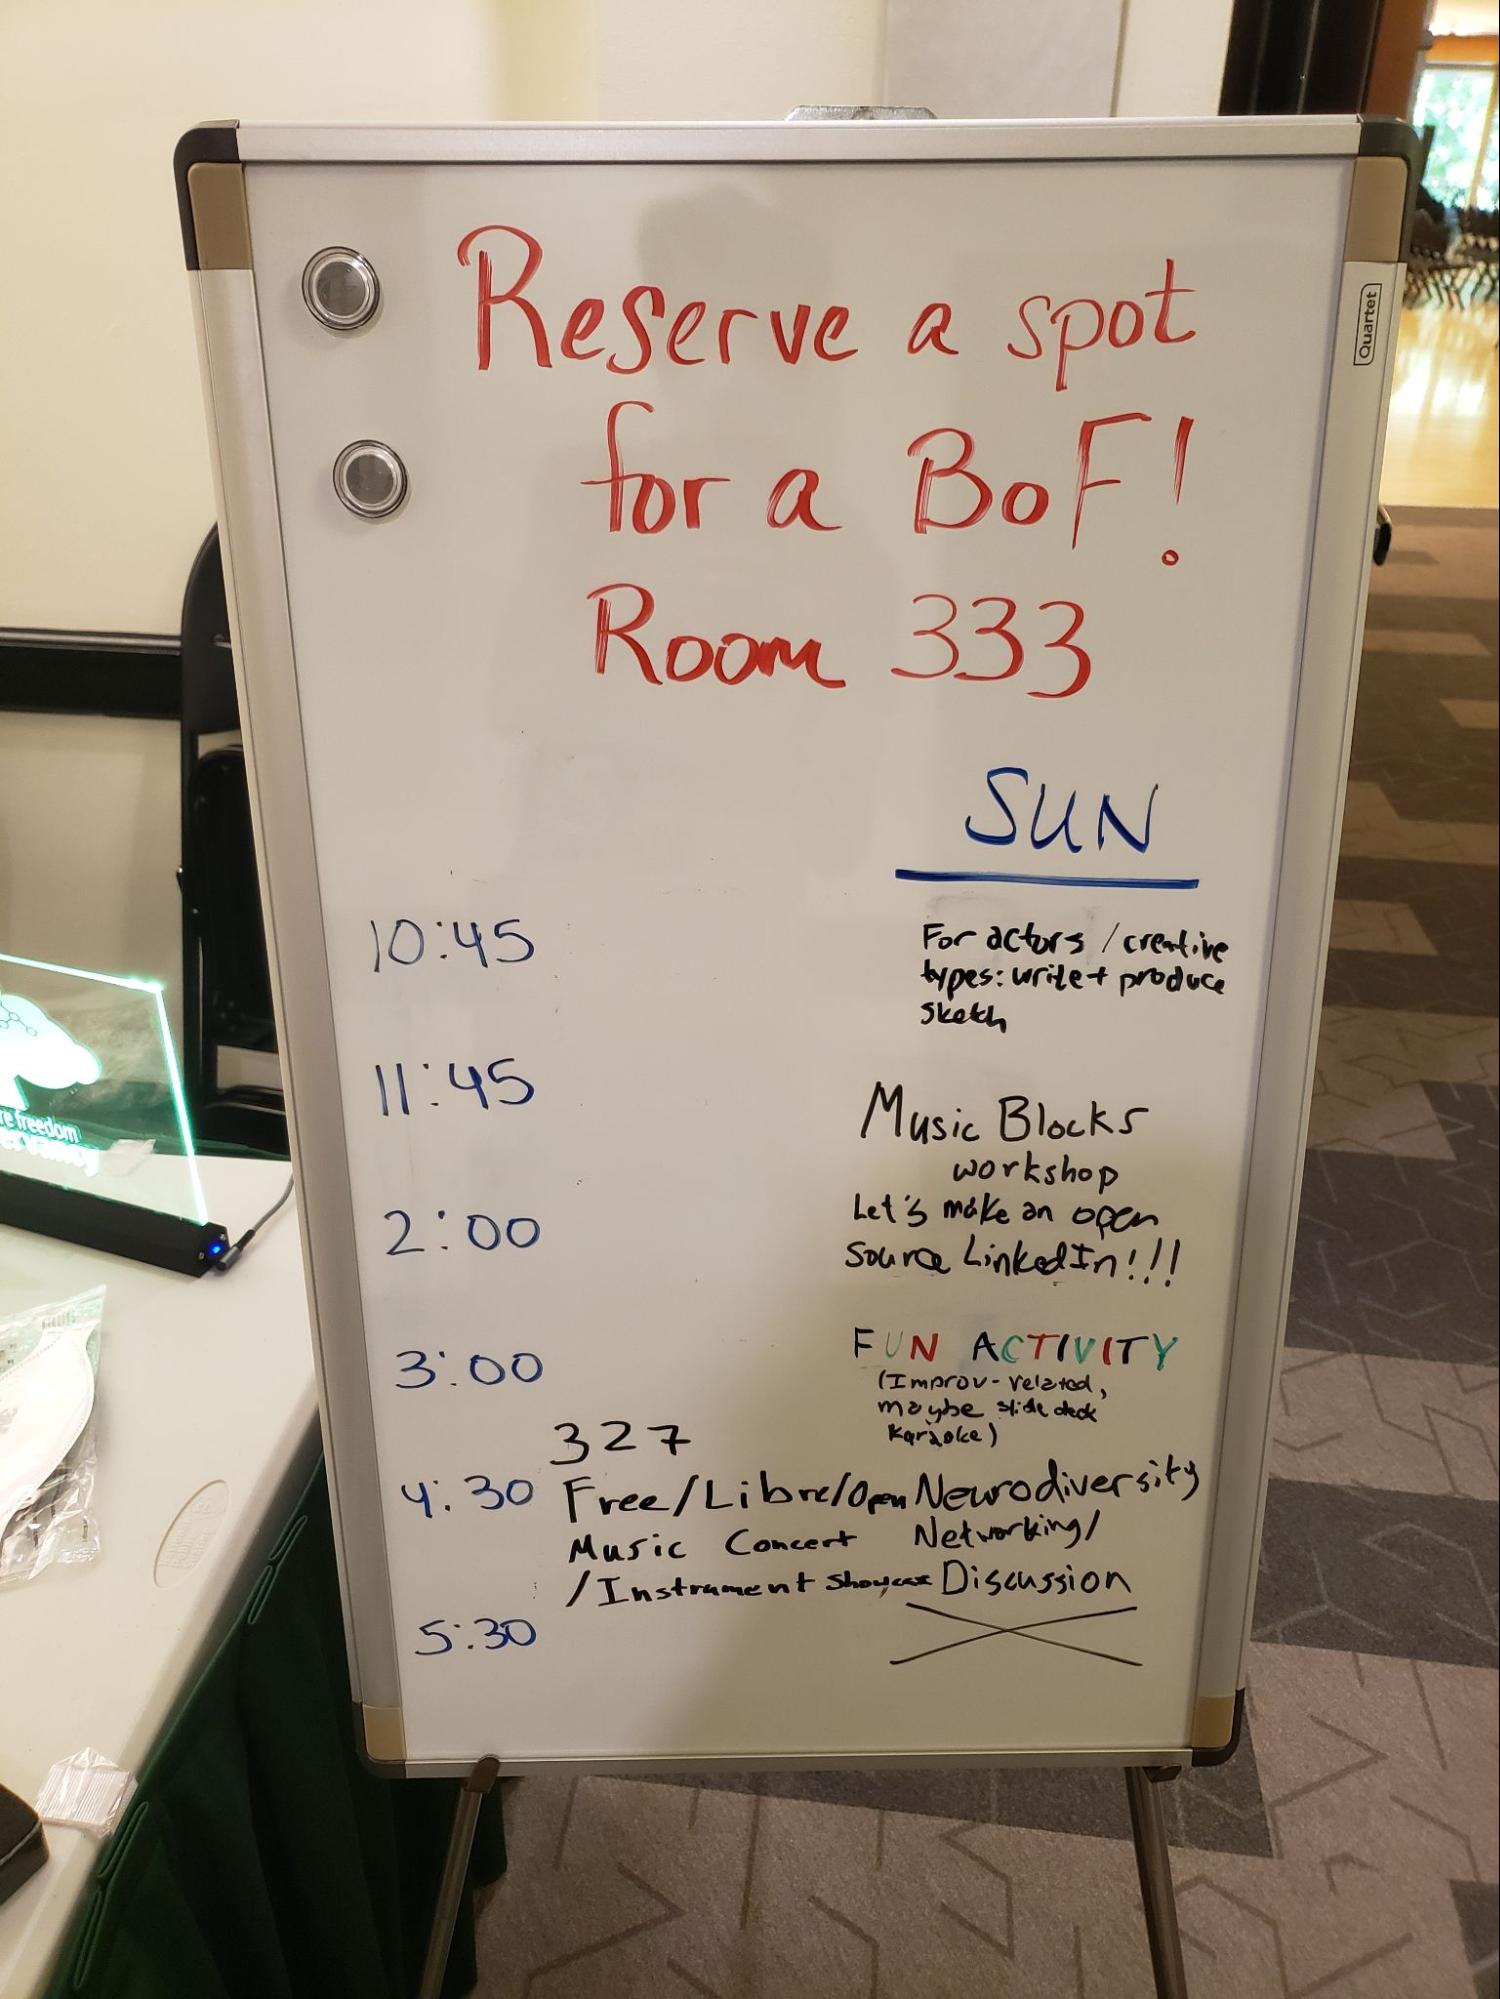 Reserve a spot
for a BoF!
Room 333
Quartet
SUN
10:45
For actors / creative
types: write + produce
sketch
11:45
Music Blocks
workshop
2:00
Let's make an open
source LinkedIn!!!
3:00
FUN ACTIVITY
(Improv-related,
maybe slide deck
karaoke)
327
4:30
Free/Libre/Open
Music Concert
/Instrument Showcase
Neurodiversity
Networking/
Discussion
5:30
re freedom